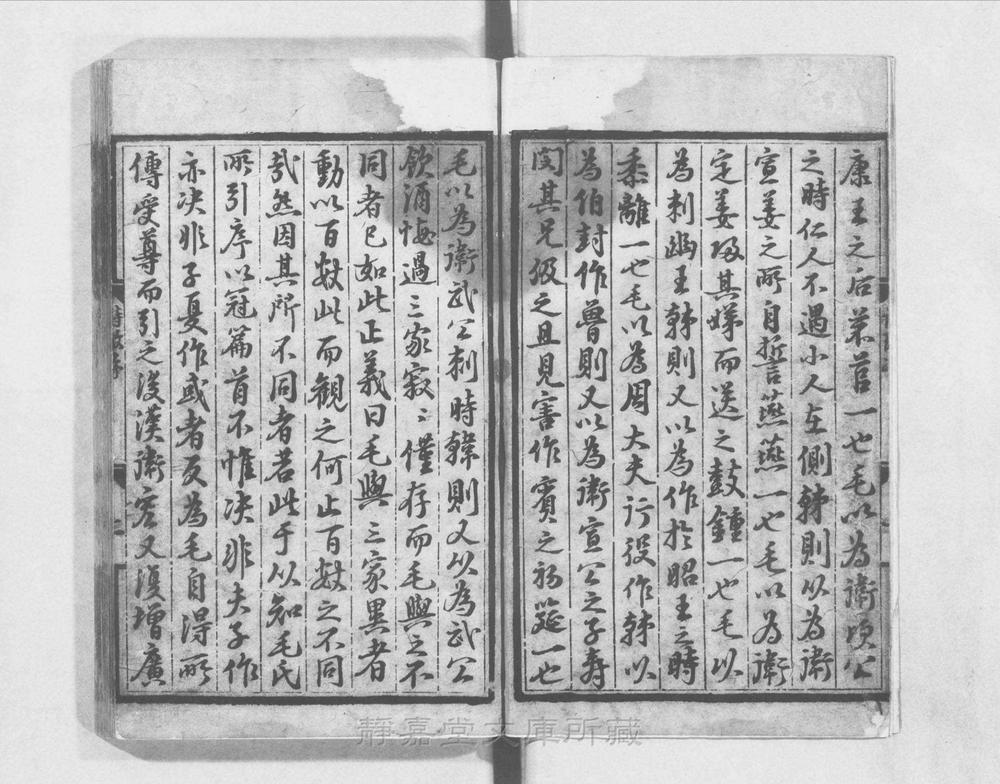 康王之后芣苢一也毛以為衛頃公
之時仁人不遇小人在側韓則以為衛
宣姜之所自誓燕燕一也毛以為衛
定姜歸其娣而送之鼓鍾一也毛以
為刺幽王韓則又以為作於昭王之時
黍離一也毛以為周大夫行役作韓以
為伯封作魯則又以為衛宣公之子壽
閔其兄伋之且見害作賓之初筵一也
毛以為衛武公刺時韓則又以為武公
飲酒悔過三家寂〻僅存而毛與之不
同者已如此正義曰毛與三家異者
動以百數此而觀之何止百數之不同
哉然因其所不同者若此于以知毛氏
所引序以冠篇首不惟決非夫子作
亦決非子夏作或者反為毛自得所
傳受尊而引之後漢衛宏又復增廣
靜嘉堂文庫所藏